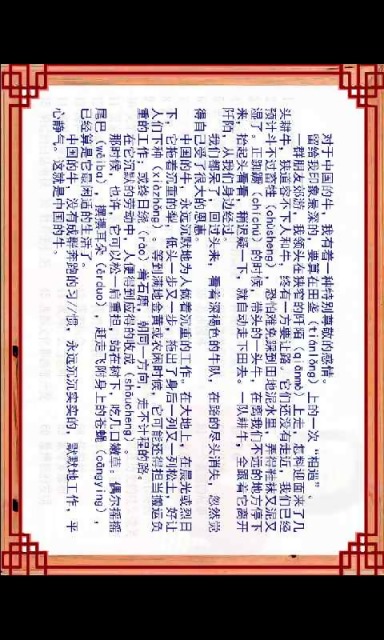 对于中国的牛，我有着一种特别尊敬的感情。
留给我印象最深的，要算在田垄(tiánlǒng)上的一次“相遇”。
一群朋友郊游，我领头在狭窄的阡陌(qiānmò)上走，怎料迎面来了几
头耕牛，狭道容不下人和牛，终有一方要让路。它们还没有走近，我们已经
预计斗不过畜牲(chùsheng)，恐怕难免踩到田地泥水里，弄得鞋袜又泥又
湿了。正踟蹰(chíchú)的时候，带头的一头牛，在离我们不远的地方停下
来，抬起头看看，稍迟疑一下，就自动走下田去。一队耕牛，全跟着它离开
阡陌，从我们身边经过。
我们都呆了，回过头来，看着深褐色的牛队，在路的尽头消失，忽然觉
得自己受了很大的恩惠。
中国的牛，永远沉默地为人做着沉重的工作。在大地上，在晨光或烈日
下，它拖着沉重的犁，低头一步又一步，拖出了身后一列又一列松土，好让
人们下种(xiàzhǒng)。等到满地金黄或农闲时候，它可能还得担当搬运负
重的工作；或终日绕(rào)着石磨，朝同一方向，走不计程的路。
在它沉默的劳动中，人便得到应得的收成(shōucheng)。
那时候，也许，它可以松一肩重担，站在树下，吃几口嫩草。偶尔摇摇
尾巴(wěiba)，摆摆耳朵(ěrduo)，赶走飞附身上的苍蝇(cāngying)，
已经算是它最闲适的生活了。
中国的牛，没有成群奔跑的习//惯，永远沉沉实实的，默默地工作，平
心静气。这就是中国的牛。